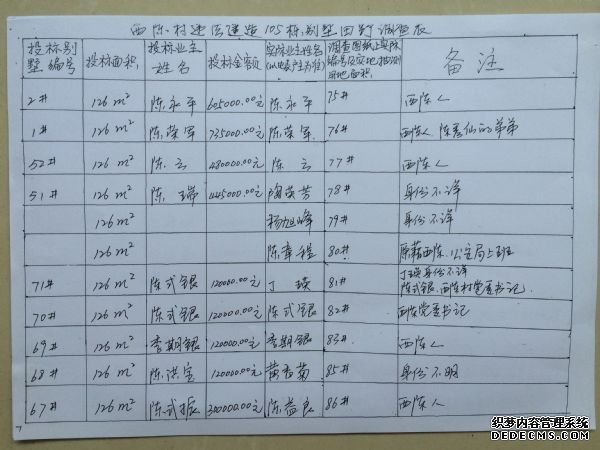 西陈村违法建造105栋别墅田野调查表
投标别墅编号 投标面积 投标业主姓名 投标金额 实际业主姓名(以地表产主为准) 调查图纸上实际编号及实地抽测用地面积 备注
2# 126m² 陈永平 605000.00元 陈永平 75# 西陈人
1# 126m² 陈荣军 735000.00元 陈荣军 76# 西陈人 陈秀仙的弟弟
52# 126m² 陈云 480000.00元 陈云 77# 西陈人
51# 126m² 陈瑞 445000.00元 陶英芳 78# 身份不详
126m² 杨旭峰 79# 身份不详
126m² 陈章程 80# 原籍西陈.公安局上班
71# 126m² 陈式银 120000.00元 丁瑛 81# 丁瑛身份不详 陈式银.西陈村党委书记
70# 126m² 陈式银 120000.00元 陈式银 82# 西陈党委书记
69# 126m² 李期银 120000.00元 李期银 83# 西陈人
68# 126m² 陈洪宝 120000元 黄香菊 85# 身份不明
67# 126m² 陈式振 300000.00元 陈益良 86# 西陈人
织梦内容管理系统
DEDECMS.COM